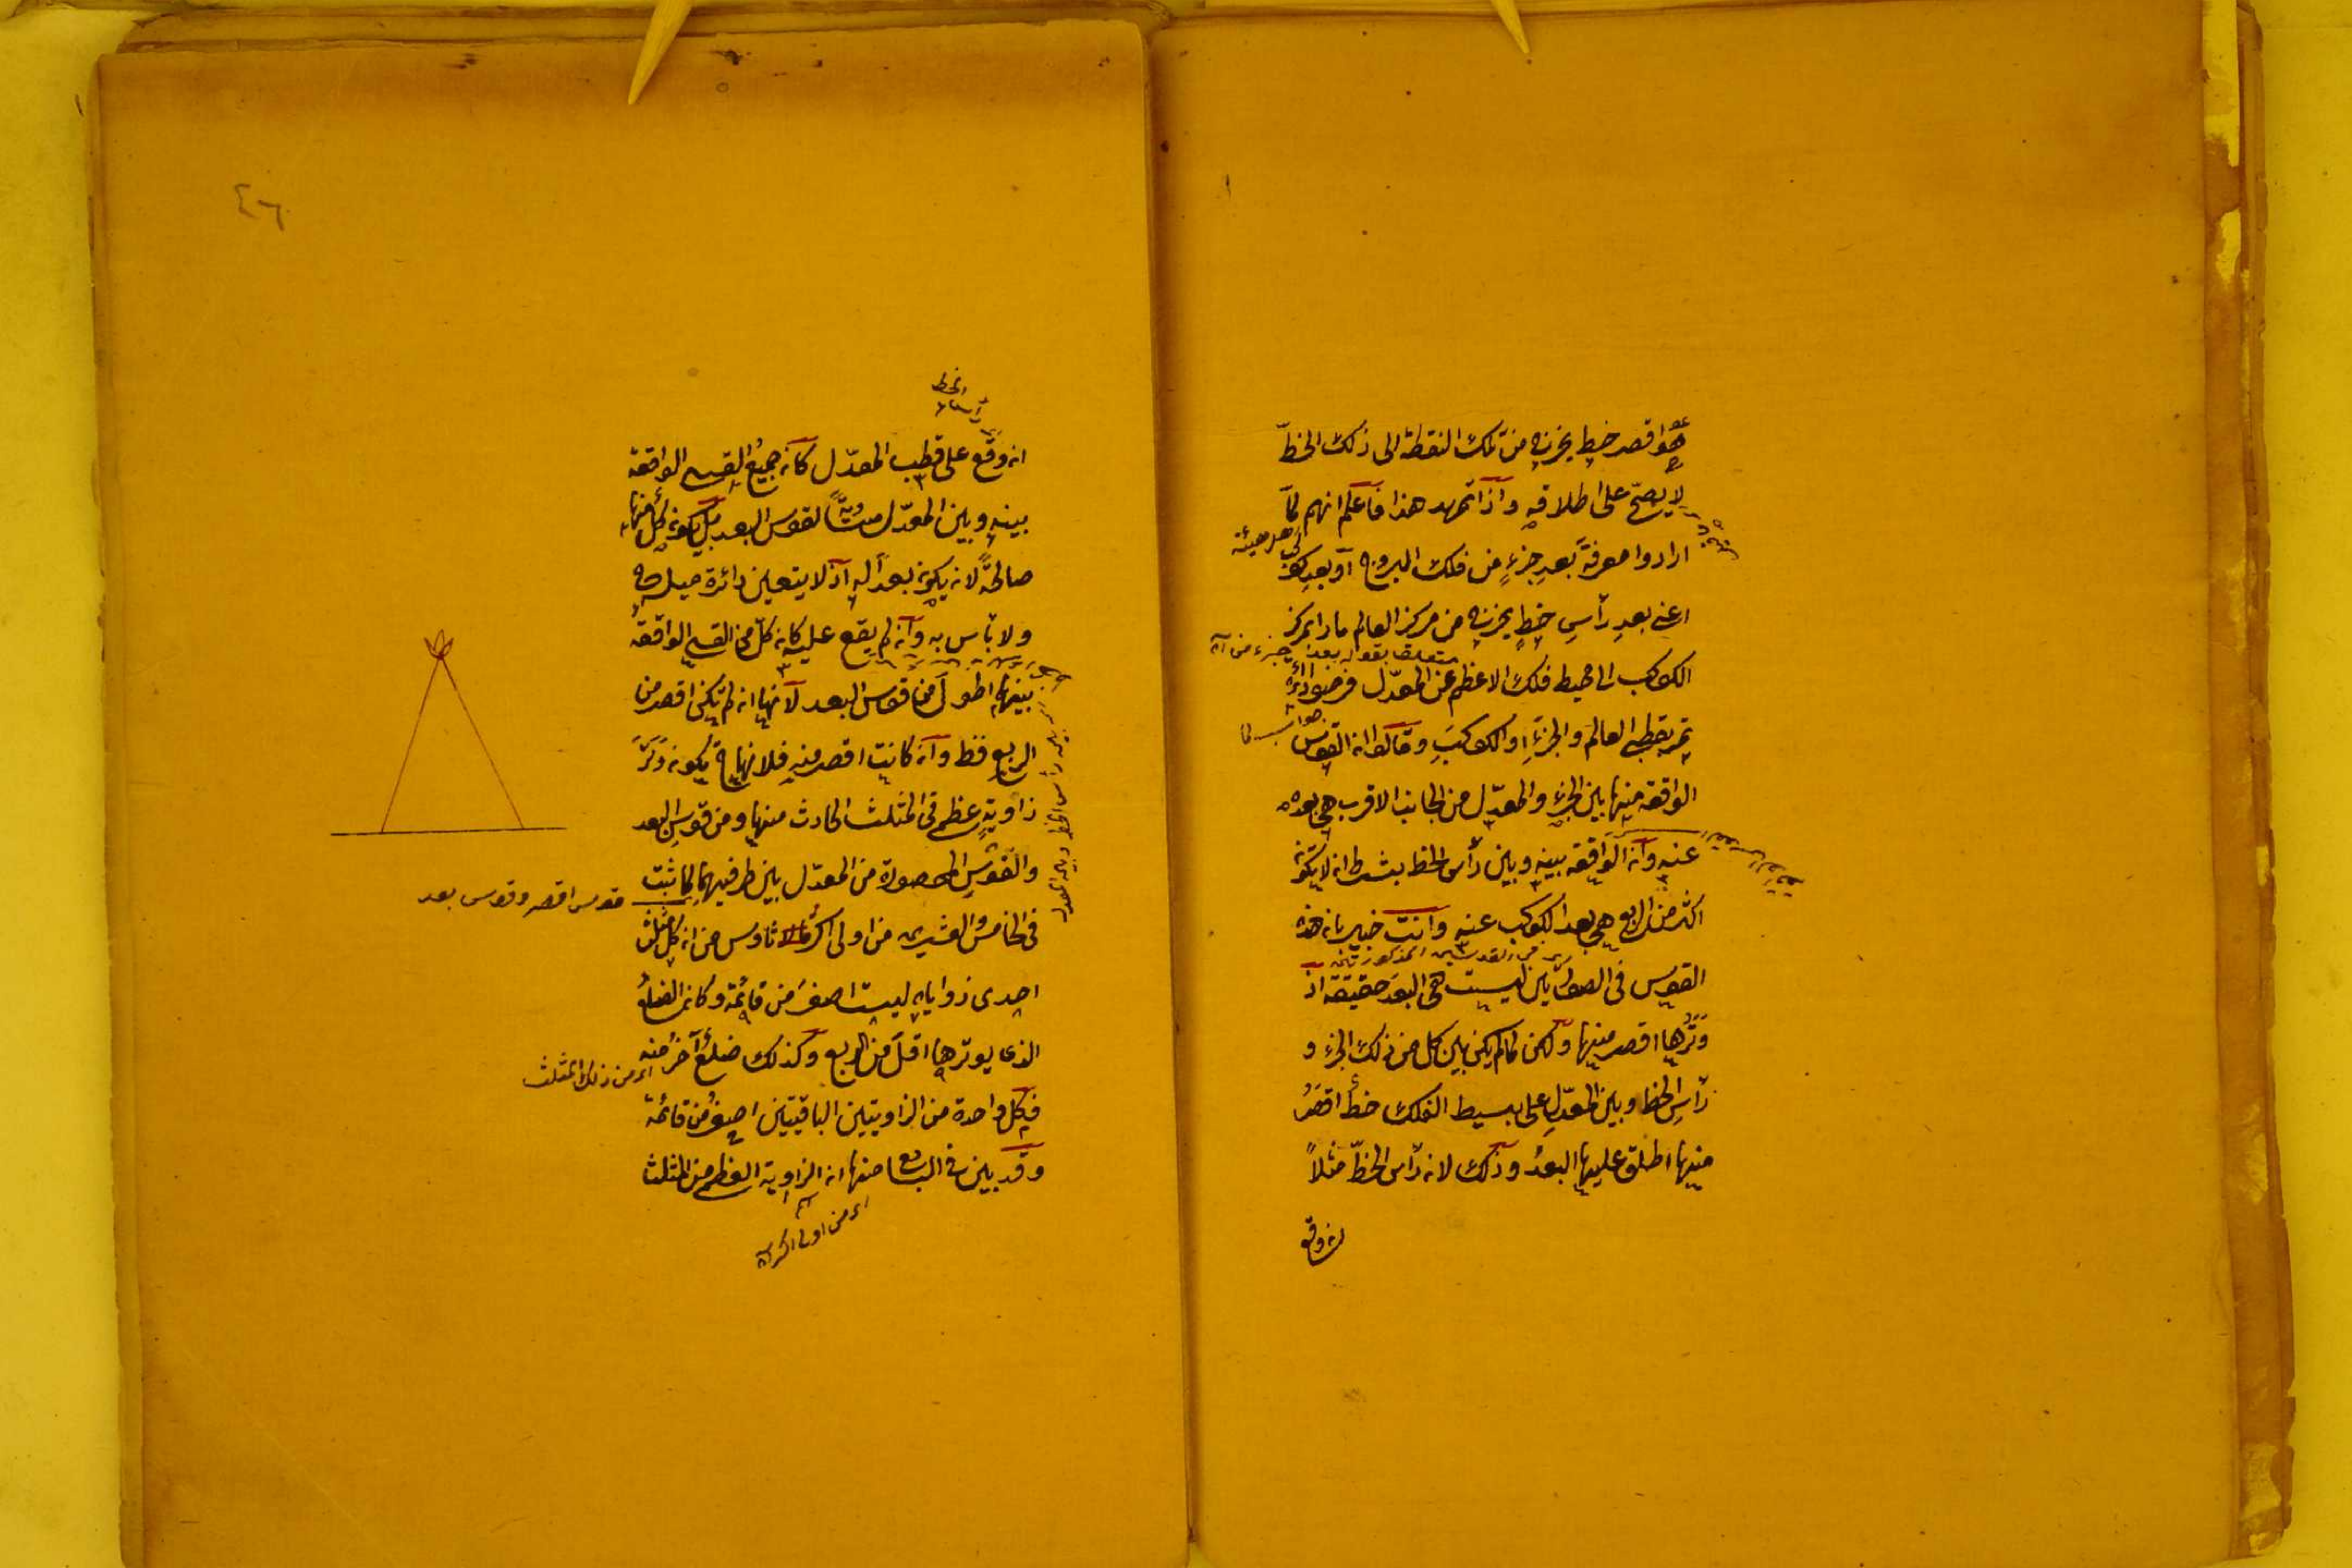 هو اقصر خط يخرج من تلك النقطة الى ذلك الخطّ
لا يصحّ على اطلاقه واذا تمهد هذا فاعلم انهم لمّا
ارادوا معرفة بعد جزءٍ من فلك البروج او بعد كوكب
اعنى بعد رأسِ خطٍ يخرج من مركز العالم مارا بمركز
متعلق بقوله بعد جزء من آه
الكوكب الى محيط فلك الاعظم عن المعدّل فرضوا دائرة
تمر بقطبى العالم والجزءِ او الكوكبِ وقالوا ان القوس
الواقعة منها بين الجزء والمعدّل من الجانب الاقرب هى بعده
عنه وان الواقعة بينه وبين رأس الخط بشرط ان لا تكون
اكثر من الربع هى بعد الكوكب عنه وانت خبير بان هذه
القوس فى الصورتين ليست هى البعد حقيقة اذ
وترها اقصر منها ولكن لما لم يكن بين كل من ذلك الجزء و
رأسِ الخط وبين المعدّلِ على بسيط الفلك خط اقصرُ
منها اطلق عليها البعدُ وذلك لان رأس الخطّ مثلاً
ان وقع
٤٦
رأس الخط
ان وقع على قطب المعدّل كان جميع القسى الواقعة
بينه وبين المعدّل مساويةً لقوس البعد بل يكون كل منها
صالحةً لان يكون بعدا له اذ لا يتعين دائرة ميله ح
ولا بأس به وان لم يقع عليه كان كلّ من القسى الواقعة
بينهما اطول من قوس البعد لانها ان لم تكن اقصر من
الربع فظ وان كانت اقصر منه فلانها ح يكون وَتَرَ
زاويةٍ عظمى فى المثلث الحادث منها ومن قوس البعد
والقوسِ المحصورة من المعدّل بين طرفيهما لما ثبت
قوس اقصر وقوس بعد
فى الخامس والعشرين من اولى اكر مالاناوس من ان كل مثلث
احدى زواياه ليست اصغرَ من قائمة وكان الضلعُ
الذى يوترها اقلَّ من الربع وكذلك ضلعٌ آخرُ منه
اى من ذلك المثلث
فكل واحدة من الزاويتين الباقيتين اصغرُ من قائمة
وقد بين فى السابع منها ان الزاوية العظمى من المثلث
اى من اولى اكر آه